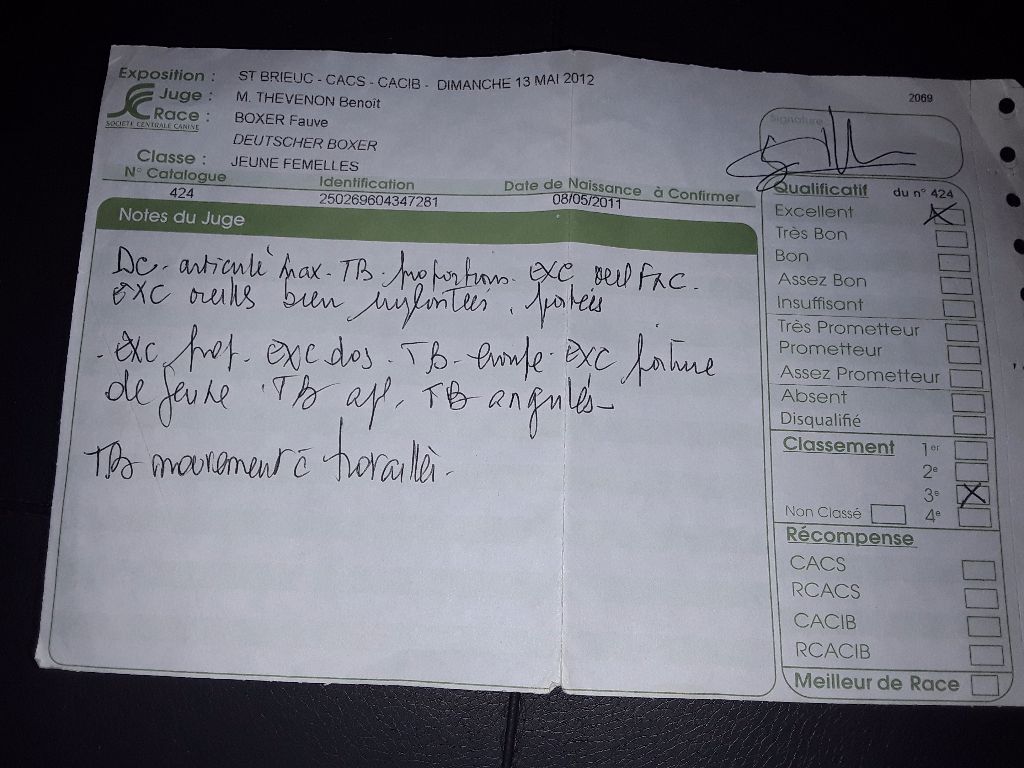 Exposition : ST BRIEUC - CACS - CACIB - DIMANCHE 13 MAI 2012
2069
Juge : M. THEVENON Benoit
Race : BOXER Fauve
SOCIETE CENTRALE CANINE
DEUTSCHER BOXER
Classe : JEUNE FEMELLES
Signature
N° Catalogue Identification Date de Naissance à Confirmer
424 250269604347281 08/05/2011
Notes du Juge
Dc. articulé max. TB. proportion. EXC oeil
EXC bien portées
. EXC prof. EXC dos. TB. croupe. EXC
de TB TB angulés
TB mouvement à
Qualificatif du n° 424
Excellent
Très Bon
Bon
Assez Bon
Insuffisant
Très Prometteur
Prometteur
Assez Prometteur
Absent
Disqualifié
Classement 1er
2e
3e
Non Classé 4e
Récompense
CACS
RCACS
CACIB
RCACIB
Meilleur de Race